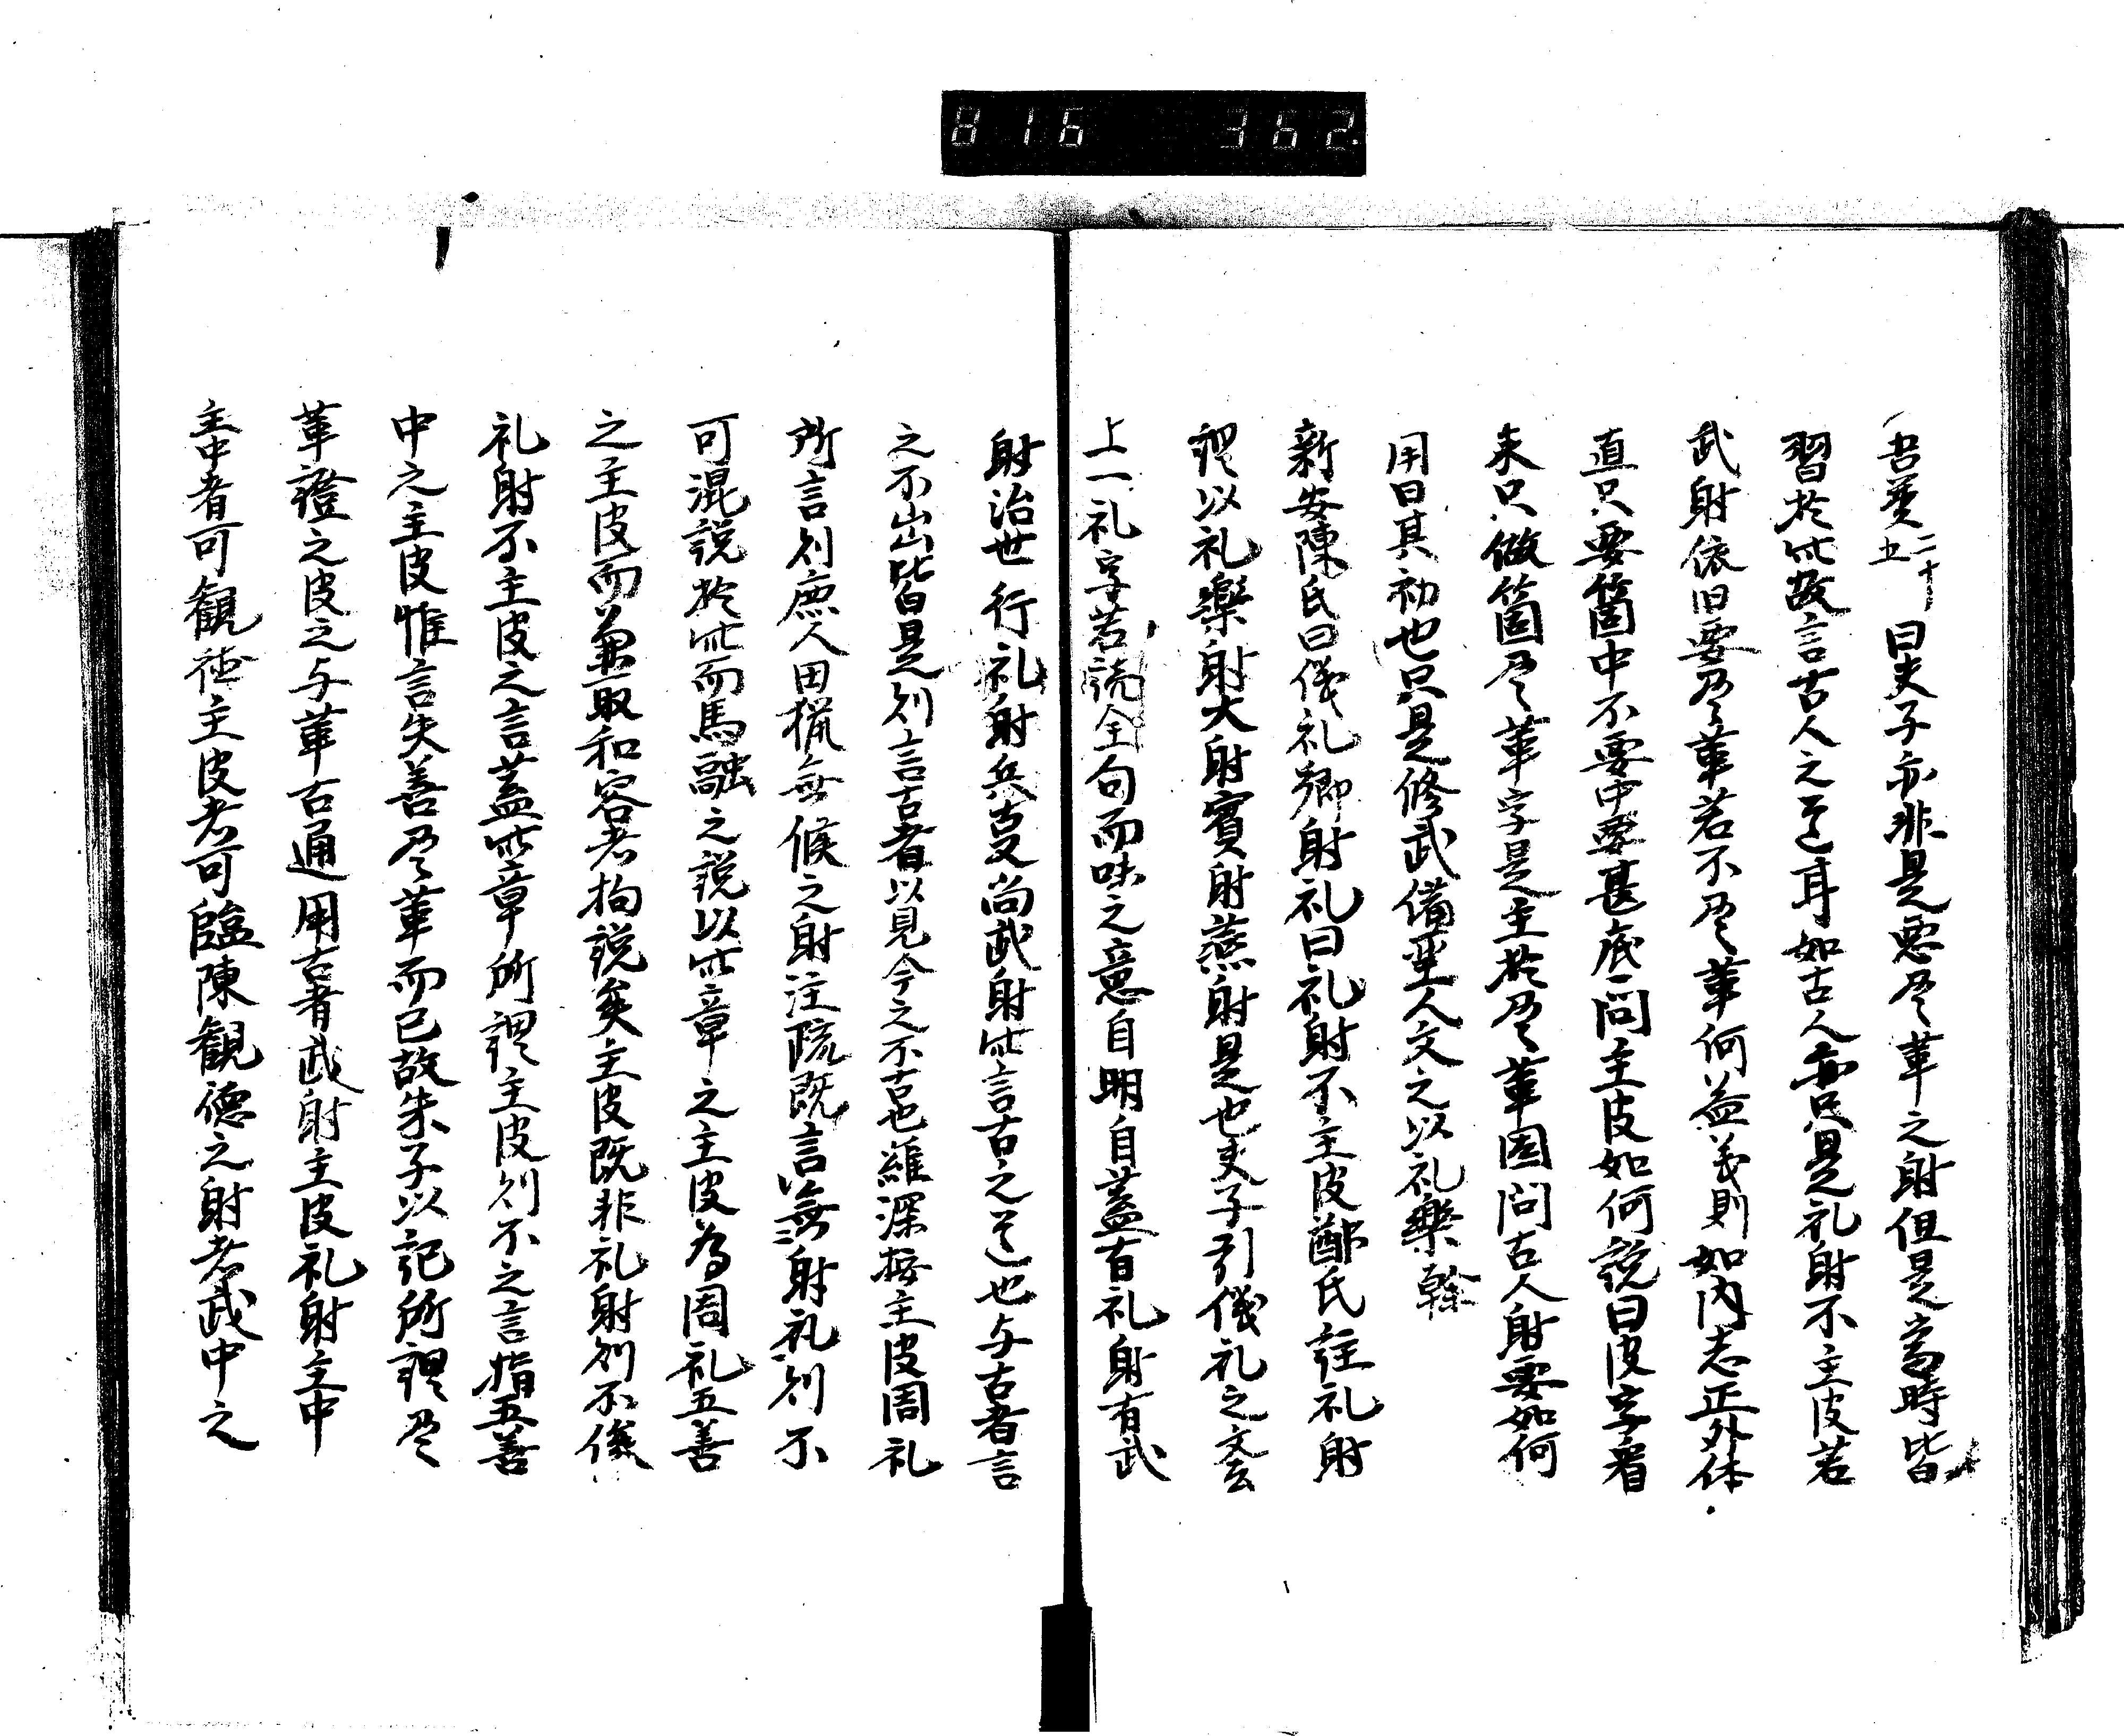 816 362.
曰夫子亦非是悪貫革之射但是当時皆
習於此故言古人之道耳如古人亦只是礼射不主皮若
武射依旧要貫革若不貫革何益義則如内志正外体
直只要箇中不要中要甚底問主皮如何説曰皮字看
来只做箇貫革字是主於貫革因問古人射要如何
用曰其初也只是修武備聖人文之以礼樂 榦
新安陳氏曰儀礼郷射礼曰礼射不主皮鄭氏註礼射
謂以礼樂射大射賓射燕射是也夫子引儀礼之文去
上一礼字若読全句而味之意自明自蓋有礼射有武
射治世行礼射兵变尚武射此言古之道也与古者言
之不出皆是則言古者以見今之不古也維深按主皮周礼
所言則庶人田猟無候之射注疏既言無射礼則不
可混説於此而馬融之説以此章之主皮為周礼五善
之主皮而兼取和容者拘説矣主皮既非礼射則不儀
礼射不主皮之言蓋此章所謂主皮則不之言指五善
中之主皮惟言失善貫革而已故朱子以記所謂貫
革證之皮之与革古通用古者武射主皮礼射主中
主中者可観德主皮者可臨陳観德之射者武中之